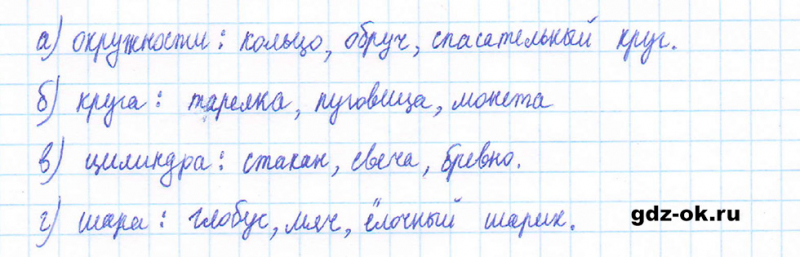 а) окружности: кольцо, обруч, спасательный круг.
б) круга: тарелка, пуговица, монета
в) цилиндра: стакан, свеча, бревно.
г) шара: глобус, мяч, ёлочный шарик.
gdz-ok.ru